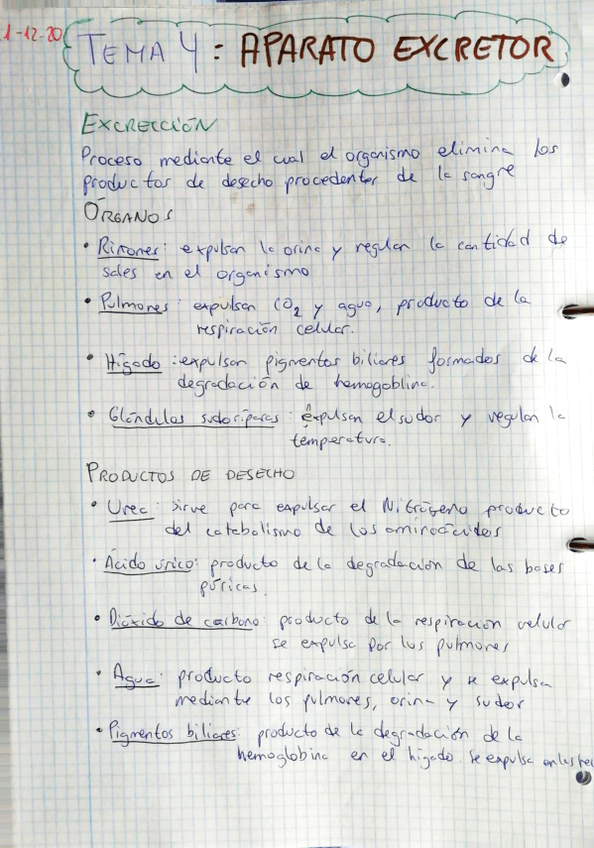 1-12-20
TEMA 4: APARATO EXCRETOR
EXCRECCIÓN
Proceso mediante el cual el organismo elimina los
productos de desecho procedentes de la sangre
ÓRGANOS
• Riñones: expulsan la orina y regulan la cantidad de
sales en el organismo
• Pulmones: expulsan CO₂ y agua, producto de la
respiración celular.
• Hígado: expulsan pigmentos biliares formados de la
degradación de hemogoblina.
• Glándulas sudoríparas: expulsan el sudor y regulan la
temperatura.
PRODUCTOS DE DESECHO
• Urea: sirve para expulsar el Nitrógeno producto
del catabolismo de los aminoácidos
• Ácido úrico: producto de la degradación de las bases
púricas.
• Dióxido de carbono: producto de la respiración celular
se expulsa por los pulmones
• Agua: producto respiración celular y se expulsa
mediante los pulmones, orina y sudor
• Pigmentos biliares: producto de la degradación de la
hemoglobina en el hígado. Se expulsa en las